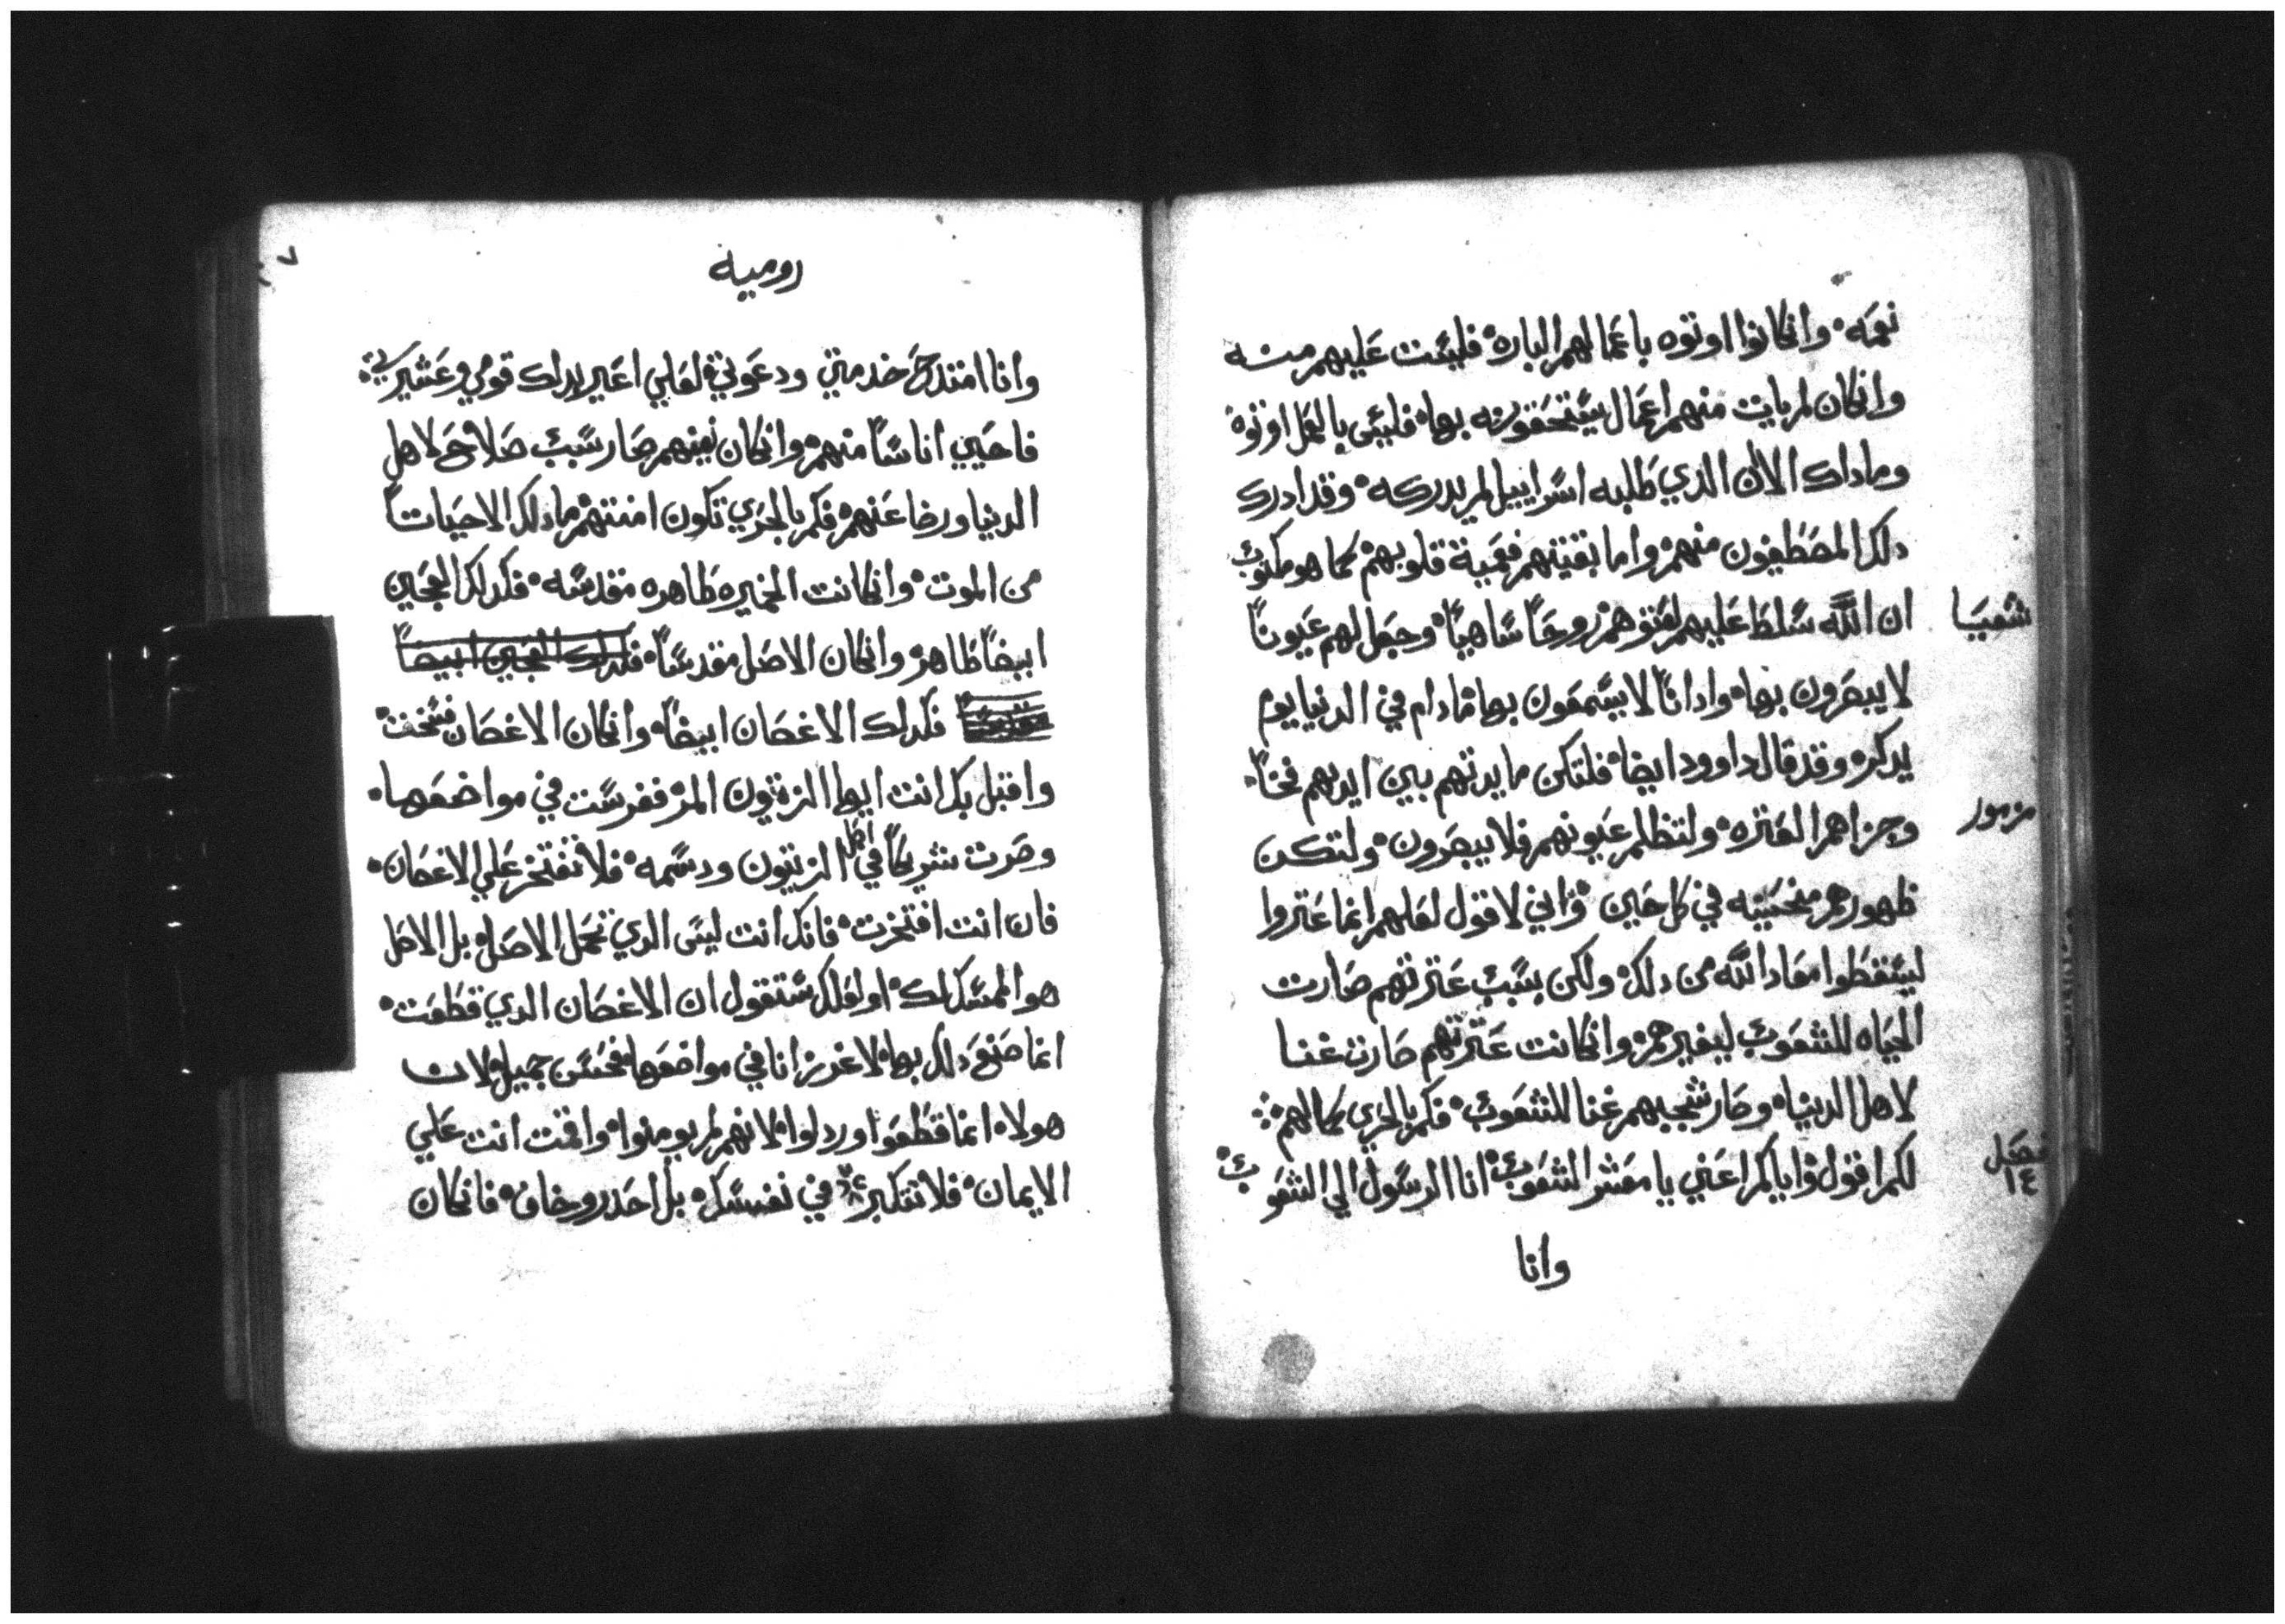 نعمه وانكانوا اوتوه باعمالهم الباره فليست عليهم منه
وانكان لم يات منهم اعمال يستحقونه بها فليس بالعمل اوتوه
وماداك الان الدي طلبه اسراييل لم يدركه وقد ادرك
دلك المصطفون منهم واما بقيتهم فعمية قلوبهم كما هو مكتوب
شعيا
ان الله سلط عليهم لعتوهم روحاً ساهياً وجعل لهم عيوناً
لا يبصرون بها واداناً لا يسمعون بها مادام في الدنيا يوم
يدكر وقد قال داوود ايضا فلتكن مايدتهم بين ايديهم فخاً
مزمور
وجزاهم العتره ولتظلم عيونهم فلا يبصرون ولتكن
ظهورهم منحنيه في كل حين واني لاقول لعلهم انما عتروا
ليسقطوا معاد الله من دلك ولكن بسبب عترتهم صارت
الحياه للشعوب ليغيرهم وانكانت عترتهم صارت غنا
لاهل الدنيا وصار شجبهم غنا للشعوب فكم بالحري كمالهم
فصل ١٤
لكم اقول واياكم اعني يا معشر الشعوب انا الرسول الي الشعوب
وانا
رومية
وانا امتدح خدمتي ودعوتي لعلي اغير بدلك قومي وعشيرتي
فاحيي اناساً منهم وانكان نفيهم صار سبب صلاح لاهل
الدنيا ورضا عنهم فكم بالحري تكون امنتهم مادلك الا حياتاً
من الموت وانكانت الخميره طاهره مقدسه فكدلك العجين
ايضاً طاهر وانكان الاصل مقدساً فكدلك العجين ايضاً
فكدلك الاغصان ايضاً وانكان الاغصان فسخت
واقبل بك انت ايها الزيتون المر فغرست في مواضعها
وصرت شريكاً في اصل الزيتون ودسمه فلا تفتخر علي الاغصان
فان انت افتخرت فانك انت ليس الدي تحمل الاصل بل الاصل
هو الممسك لك او لعلك ستقول ان الاغصان الدي قطعت
انما صنع دلك بها لاغرز انا في مواضعها فحسن جميل لان
هولاء انما قطعوا وردلوا لانهم لم يومنوا واقت انت علي
الايمان فلا تتكبر في نفسك بل احدر وخاف فانكان